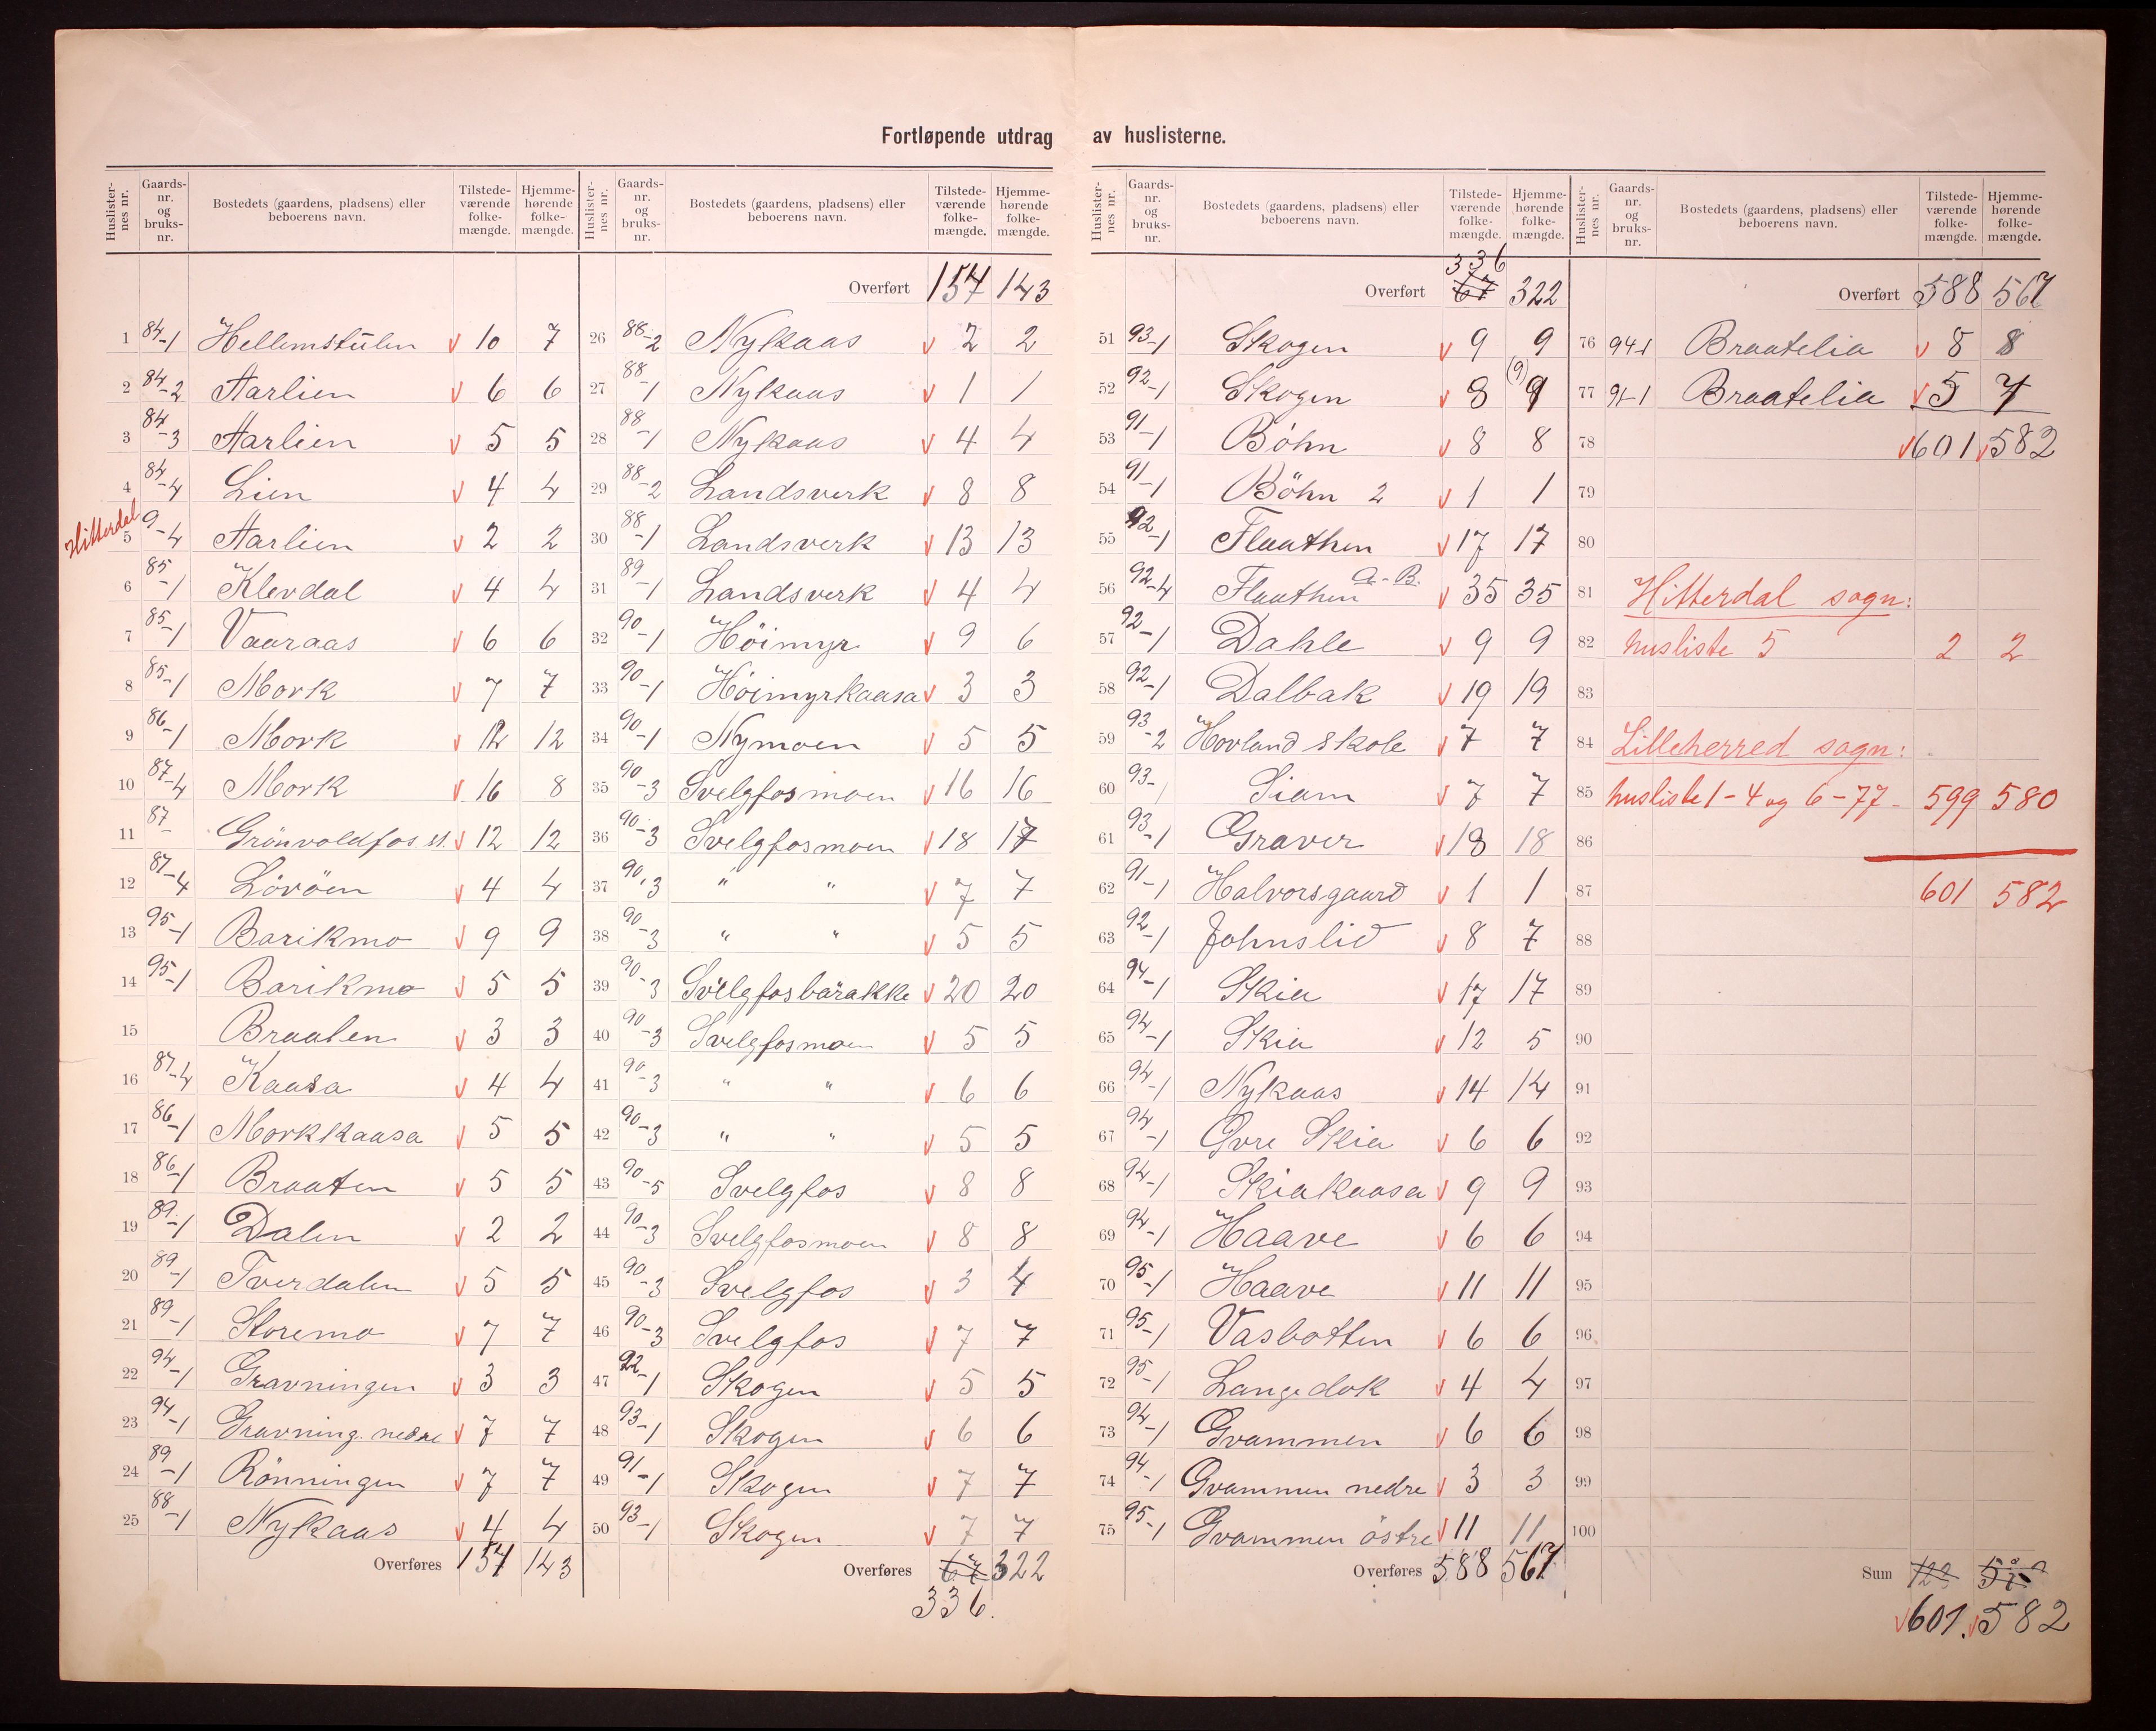 Fortløpende utdrag av huslisterne.
Huslisternes nr. Gaards-nr. og bruks-nr. Bostedets (gaardens, pladsens) eller beboerens navn. Tilstedeværende folkemængde. Hjemmehørende folkemængde.
1 84-1 Hellemstulen v 10 7
2 84-2 Aarlien v 6 6
3 84-3 Aarlien v 5 5
4 84-4 Lien v 4 4
Hitterdal 5 9-4 Aarlien v 2 2
6 85-1 Klevdal v 4 4
7 85-1 Vaaraas v 6 6
8 85-1 Mork v 7 7
9 86-1 Mork v 12 12
10 87-4 Mork v 16 8
11 87- Grönvoldfos st. v 12 12
12 87-4 Lövöen v 4 4
13 95-1 Barikmo v 9 9
14 95-1 Barikmo v 5 5
15 Braaten v 3 3
16 87-4 Kaasa v 4 4
17 86-1 Morkkaasa v 5 5
18 86-1 Braaten v 5 5
19 89-1 Dalen v 2 2
20 89-1 Tverdalen v 5 5
21 89-1 Storemo v 7 7
22 94-1 Gravningen v 3 3
23 94-1 Gravning. nedre v 7 7
24 89-1 Rönningen v 7 7
25 88-1 Nykaas v 4 4
Overføres 157 143
Huslisternes nr. Gaards-nr. og bruks-nr. Bostedets (gaardens, pladsens) eller beboerens navn. Tilstedeværende folkemængde. Hjemmehørende folkemængde.
Overført 157 143
26 88-2 Nykaas v 2 2
27 88-1 Nykaas v 1 1
28 88-1 Nykaas v 4 4
29 88-2 Landsverk v 8 8
30 88-1 Landsverk v 13 13
31 89-1 Landsverk v 4 4
32 90-1 Höimyr v 9 6
33 90-1 Höimyrkaasa v 3 3
34 90-1 Nymoen v 5 5
35 90-3 Svelgfosmoen v 16 16
36 90-3 Svelgfosmoen v 18 17
37 90,3 " " v 7 7
38 90-3 " " v 5 5
39 90-3 Svelgfosbarakke v 20 20
40 90-3 Svelgfosmoen v 5 5
41 90-3 " " v 6 6
42 90-3 " " v 5 5
43 90-5 Svelgfos v 8 8
44 90-3 Svelgfosmoen v 8 8
45 90-3 Svelgfos v 3 4
46 90-3 Svelgfos v 7 7
47 92-1 Skogen v 5 5
48 93-1 Skogen v 6 6
49 91-1 Skogen v 7 7
50 93-1 Skogen v 7 7
Overføres 67 322
336.
Huslisternes nr. Gaards-nr. og bruks-nr. Bostedets (gaardens, pladsens) eller beboerens navn. Tilstedeværende folkemængde. Hjemmehørende folkemængde.
336
Overført 67 322
51 93-1 Skogen v 9 9
52 92-1 Skogen v 8 (9) 9
53 91-1 Böhn v 8 8
54 91-1 Böhn 2 v 1 1
55 92-1 Flaathen v 17 17
56 92-4 Flaathen a-B. v 35 35
57 92-1 Dahle v 9 9
58 92-1 Dalbak v 19 19
59 93-2 Hovland skole v 7 7
60 93-1 Siam v 7 7
61 93-1 Graver v 18 18
62 91-1 Halvorsgaard v 1 1
63 92-1 Johnslid v 8 7
64 94-1 Skia v 17 17
65 94-1 Skia v 12 5
66 94-1 Nykaas v 14 14
67 94-1 Övre Skia v 6 6
68 94-1 Skiakaasa v 9 9
69 94-1 Haave v 6 6
70 95-1 Haave v 11 11
71 95-1 Vasbotten v 6 6
72 95-1 Langedok v 4 4
73 94-1 Gvammen v 6 6
74 94-1 Gvammen nedre v 3 3
75 95-1 Gvammen östre v 11 11
Overføres 588 567
Huslisternes nr. Gaards-nr. og bruks-nr. Bostedets (gaardens, pladsens) eller beboerens navn. Tilstedeværende folkemængde. Hjemmehørende folkemængde.
Overført 588 567
76 94-1 Braatelia v 8 8
77 91-1 Braatelia v 5 7
78 v 601 v 582
79
80
81 Hitterdal sogn:
82 husliste 5 2 2
83
84 Lilleherred sogn:
85 husliste 1-4 og 6-77- 599 580
86
87 601 582
88
89
90
91
92
93
94
95
96
97
98
99
100
Sum
v 601. v 582